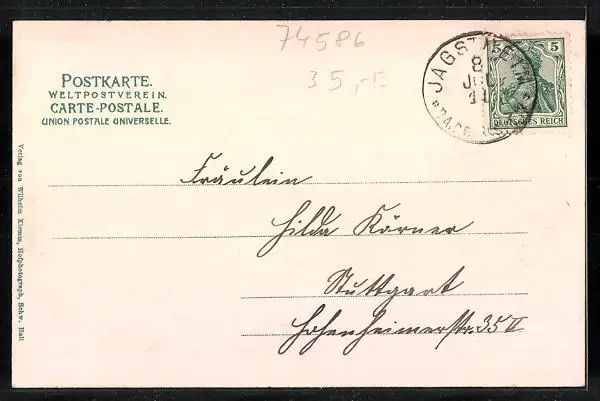 74586
35,-E
POSTKARTE.
WELTPOSTVEREIN.
CARTE-POSTALE.
UNION POSTALE UNIVERSELLE.
JAGSTHEIM
8
JUL
11
5
DEUTSCHES REICH
Verlag von Wilhelm Klemm, Hofphotograph, Schw. Hall
Fräulein
Hilda Körner
Stuttgart
Hohenheimerstr. 35 II